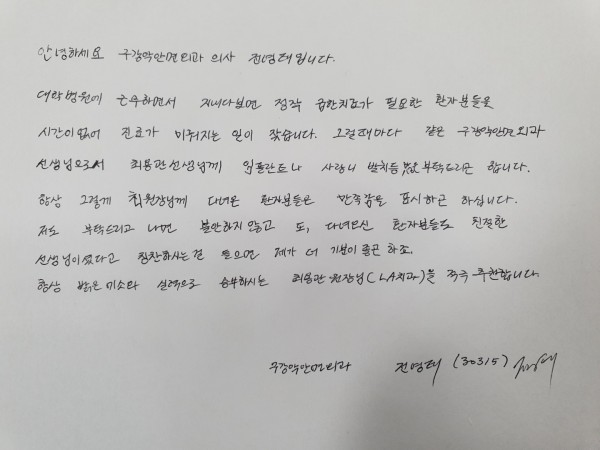 안녕하세요 구강악안면외과 의사 전영태입니다.
대학병원에 근무하면서 지내다보면 정작 급한치료가 필요한 환자분들을
시간이 없어 진료가 미뤄지는 일이 잦습니다. 그럴때마다 같은 구강악안면외과
선생님으로서 최용관선생님께 임플란트나 사랑니 발치등을 부탁드리곤 합니다.
항상 그렇게 최원장님께 다녀온 환자분들은 만족감을 표시하곤 하십니다.
저도 부탁드리고 나면 불안하지 않고 또, 다녀오신 환자분들도 친절한
선생님이셨다고 칭찬하시는걸 들으면 제가 더 기분이 좋곤 하죠.
항상 밝은미소와 실력으로 승부하시는 최용관 원장님(LA치과)을 적극 추천합니다.
구강악안면외과 전영태 (30315)